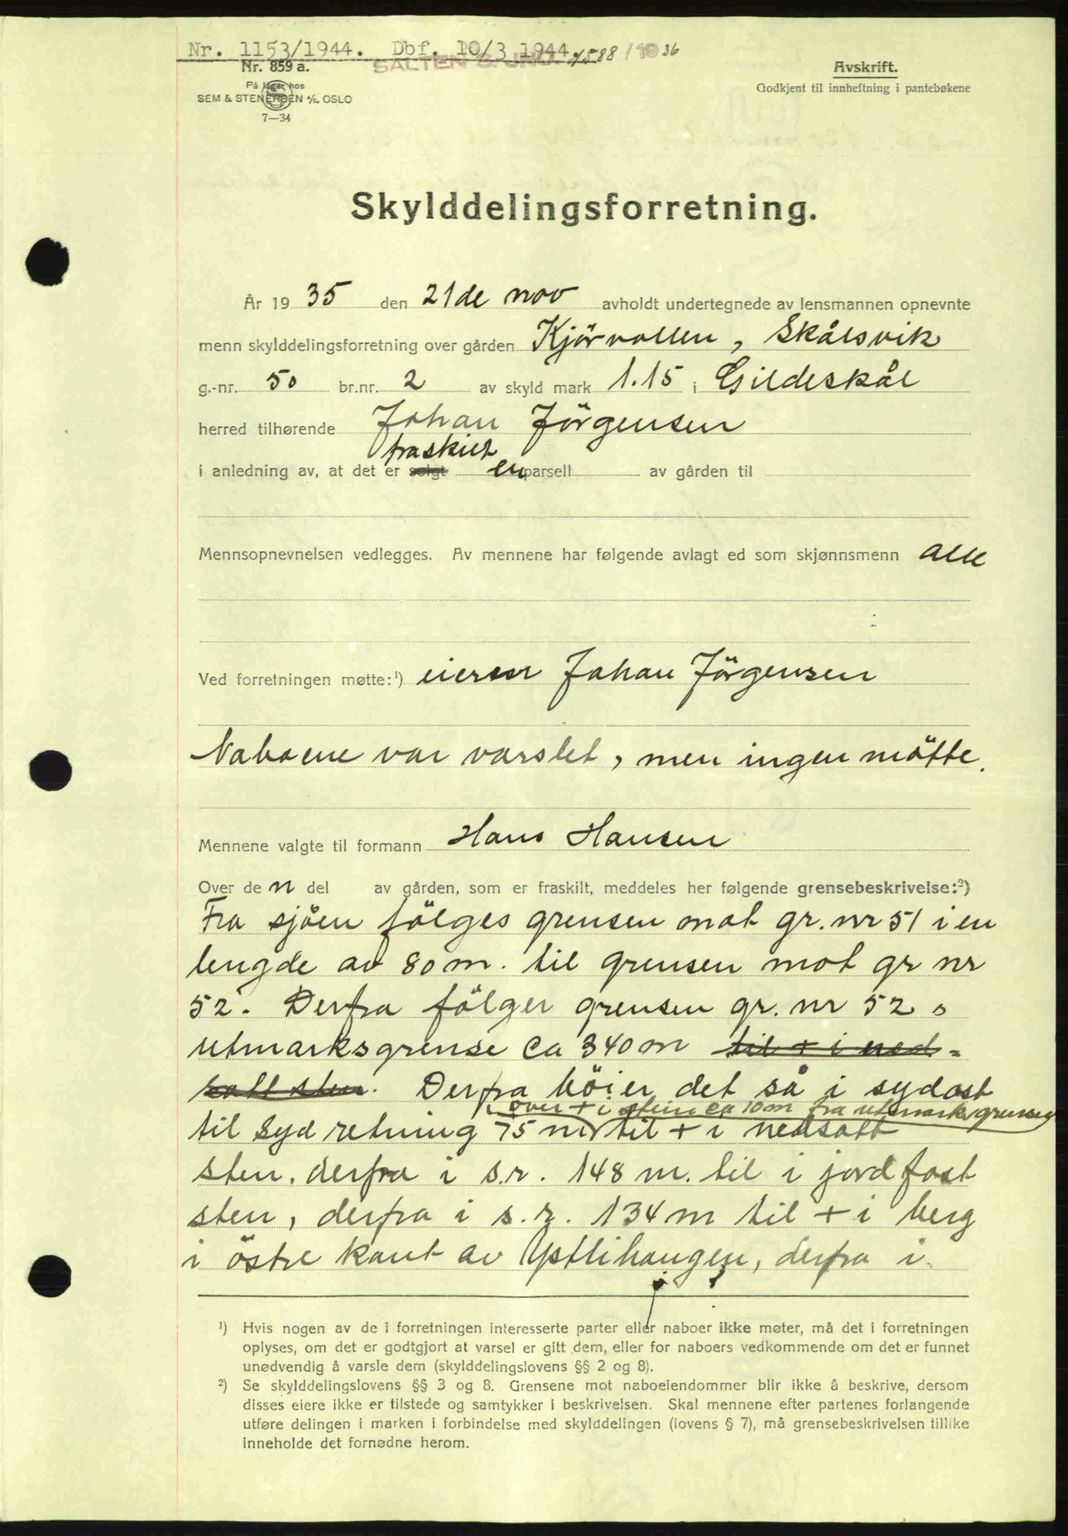 Nr. 1153/1944. Dbf. 10/3 1944.
SALTEN S. JNO. 1588/1936
Nr. 859 a.
På lager hos
SEM & STENERSEN A/S, OSLO
7—34
Avskrift.
Godkjent til innheftning i pantebøkene
Skylddelingsforretning.
År 19 35 den 21de nov avholdt undertegnede av lensmannen opnevnte
menn skylddelingsforretning over gården Kjörvollen, Skålsvik
g.-nr. 50 br.nr. 2 av skyld mark 1.15 i Gildeskål
herred tilhørende Johan Jörgensen
fraskilt
i anledning av, at det er solgt en parsell av gården til
Mennsopnevnelsen vedlegges. Av mennene har følgende avlagt ed som skjønnsmenn alle
Ved forretningen møtte:¹) eieren Johan Jörgensen
Naboene var varslet, men ingen mötte.
Mennene valgte til formann Hans Hansen
Over de n del av gården, som er fraskilt, meddeles her følgende grensebeskrivelse:²)
Fra sjöen fölges grensen mot gr. nr 51 i en
lengde av 80 m. til grensen mot gr nr
52. Derfra fölger grensen gr. nr 52 s
utmarksgrense ca 340 m til + i ned-
satt sten. Derfra böier det så i sydost
over + i stein ca 10 m fra utmarksgrensen
til syd retning 75 m til + i nedsatt
sten, derfra i s.r. 148 m. til i jordfast
sten, derfra i s.r. 134 m til + i berg
i östre kant av Ystlihaugen, derfra i
¹) Hvis nogen av de i forretningen interesserte parter eller naboer ikke møter, må det i forretningen
oplyses, om det er godtgjort at varsel er gitt dem, eller for naboers vedkommende om det er funnet
unødvendig å varsle dem (skylddelingslovens §§ 2 og 8).
²) Se skylddelingslovens §§ 3 og 8. Grensene mot naboeiendommer blir ikke å beskrive, dersom
disses eiere ikke er tilstede og samtykker i beskrivelsen. Skal mennene efter partenes forlangende
utføre delingen i marken i forbindelse med skylddelingen (lovens § 7), må grensebeskrivelsen tillike
inneholde det fornødne herom.